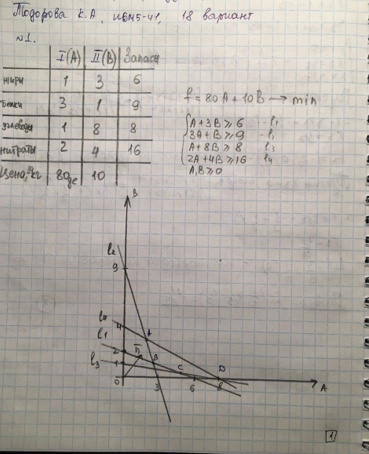 Тодорова К.А, ИБМ5-41, 18 вариант
№1.
I(A) II(B) Запасы
жиры 1 3 6
белки 3 1 9
углеводы 1 8 8
нитраты 2 4 16
Цена, 80 10
f = 80A + 10B → min
A+3B ≥ 6 - l₁
3A+B ≥ 9 - l₂
A+8B ≥ 8 l₃
2A+4B ≥ 16 - l₄
A,B ≥ 0
B
l₂
9
4
A
l₁
2
B
C
D
l₃
1
0
3
6
8
A
1